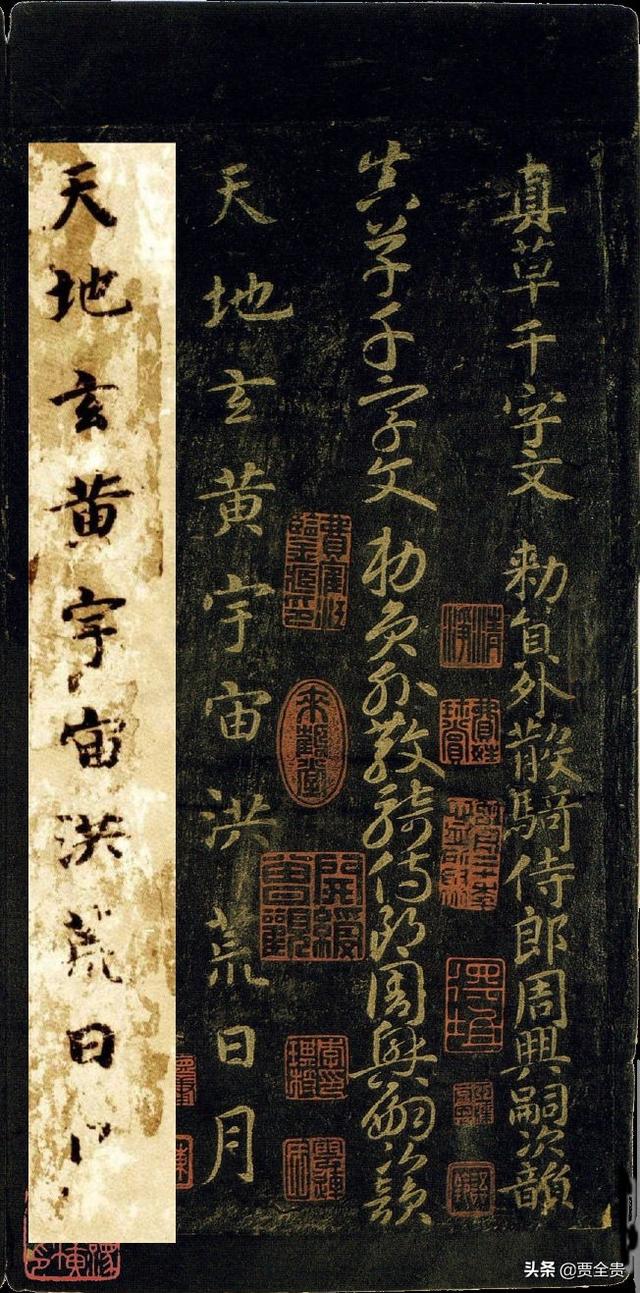 真草千字文 勅員外散騎侍郎周興嗣次韻
真草千字文 勅員外散騎侍郎周興嗣次韻
天地玄黄宇宙洪荒日月
天地玄黄宇宙洪荒日
头条 @贾全贵